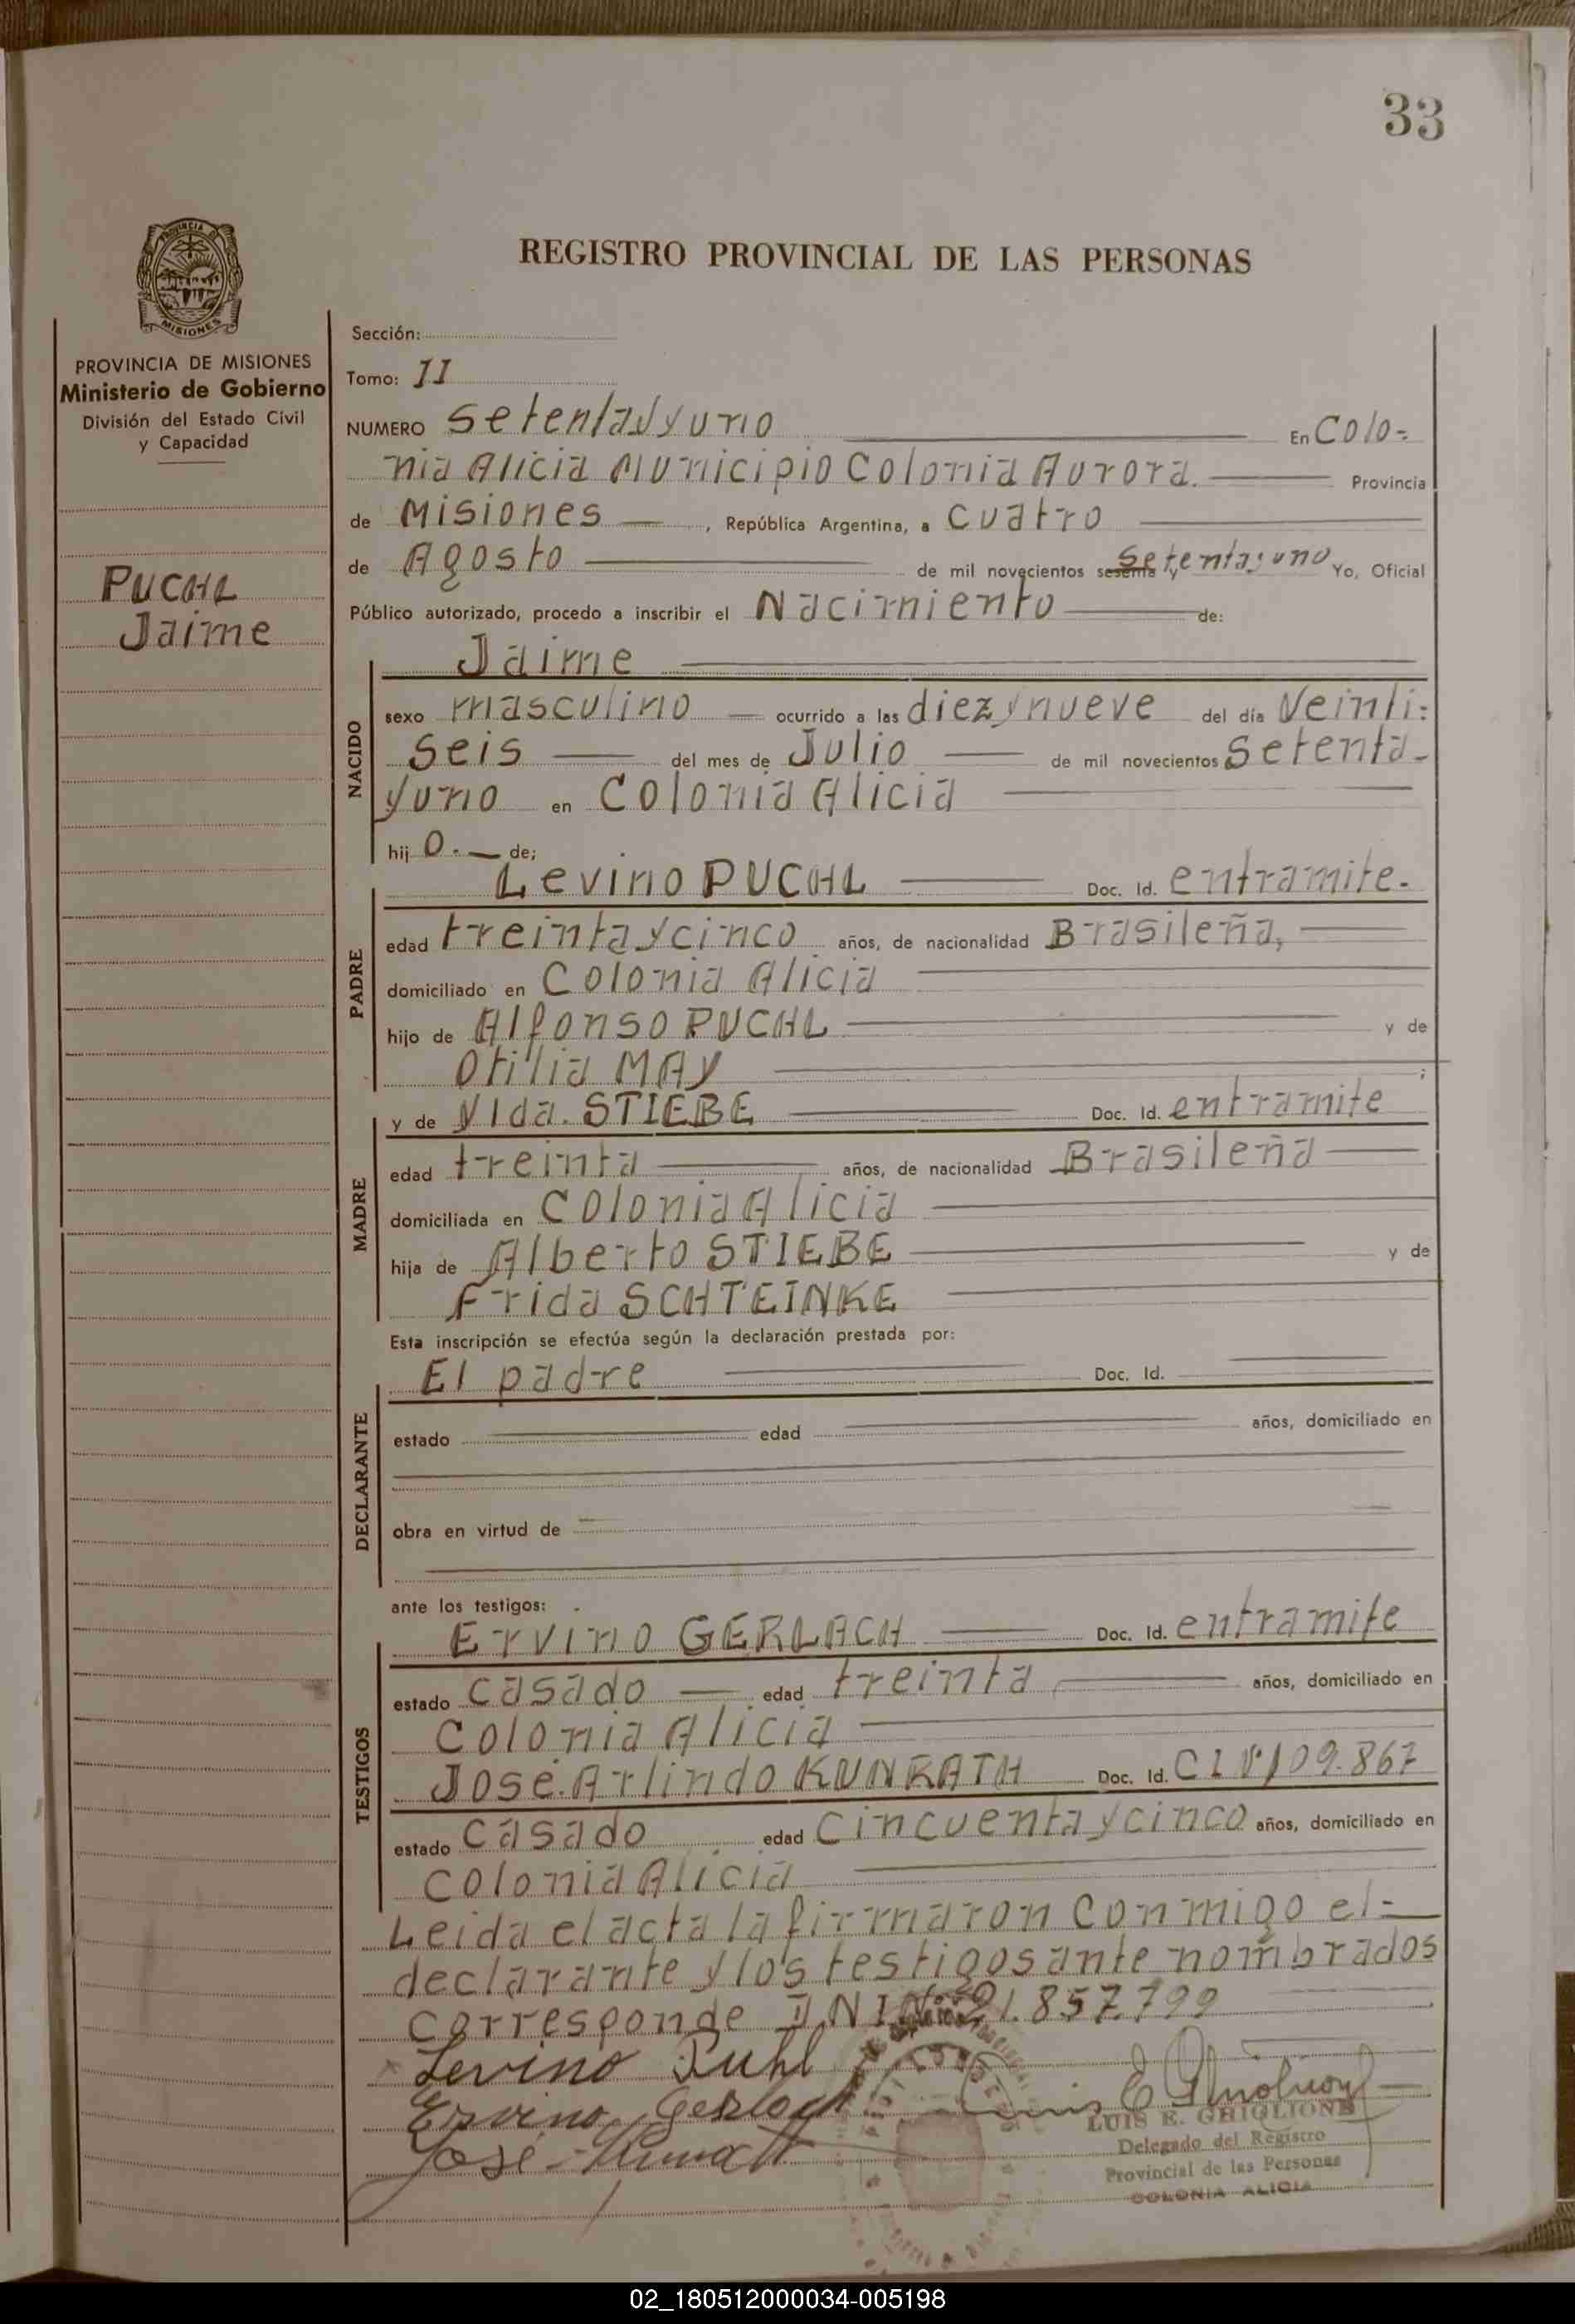 33
REGISTRO PROVINCIAL DE LAS PERSONAS
PROVINCIA DE MISIONES
Ministerio de Gobierno
División del Estado Civil
y Capacidad
PUCHL
Jaime
Sección:
Tomo: II
NUMERO setenta y uno En Colo-
nia Alicia Municipio Colonia Aurora. Provincia
de Misiones, República Argentina, a cuatro
de Agosto de mil novecientos sesenta y setenta y uno Yo, Oficial
Público autorizado, procedo a inscribir el Nacimiento de:
NACIDO
Jaime
sexo masculino ocurrido a las diez y nueve del día Veinti-
seis del mes de Julio de mil novecientos setenta-
y uno en Colonia Alicia
hijo.- de;
PADRE
Levino PUCHL Doc. Id. entramite.
edad treinta y cinco años, de nacionalidad Brasileña,
domiciliado en Colonia Alicia
hijo de Alfonso PUCHL y de
Otilia MAY ;
MADRE
y de Vlda. STIEBE Doc. Id. entramite
edad treinta años, de nacionalidad Brasileña
domiciliada en Colonia Alicia
hija de Alberto STIEBE y de
Frida SCHTEINKE
Esta inscripción se efectúa según la declaración prestada por:
DECLARANTE
El padre Doc. Id.
estado edad años, domiciliado en
obra en virtud de
ante los testigos:
TESTIGOS
Ervino GERLACH Doc. Id. entramite
estado casado edad treinta años, domiciliado en
Colonia Alicia
José Arlindo KUNRATH Doc. Id. C I Nº 109.867
estado casado edad Cincuenta y cinco años, domiciliado en
Colonia Alicia
Leida el acta la firmaron conmigo el-
declarante y los testigos ante nombrados
corresponde DNI Nº 21.857.799
Levino Puhl
Ervino Gerlach
José
LUIS E. GHIGLIONE
Delegado del Registro
Provincial de las Personas
COLONIA ALICIA
02_180512000034-005198